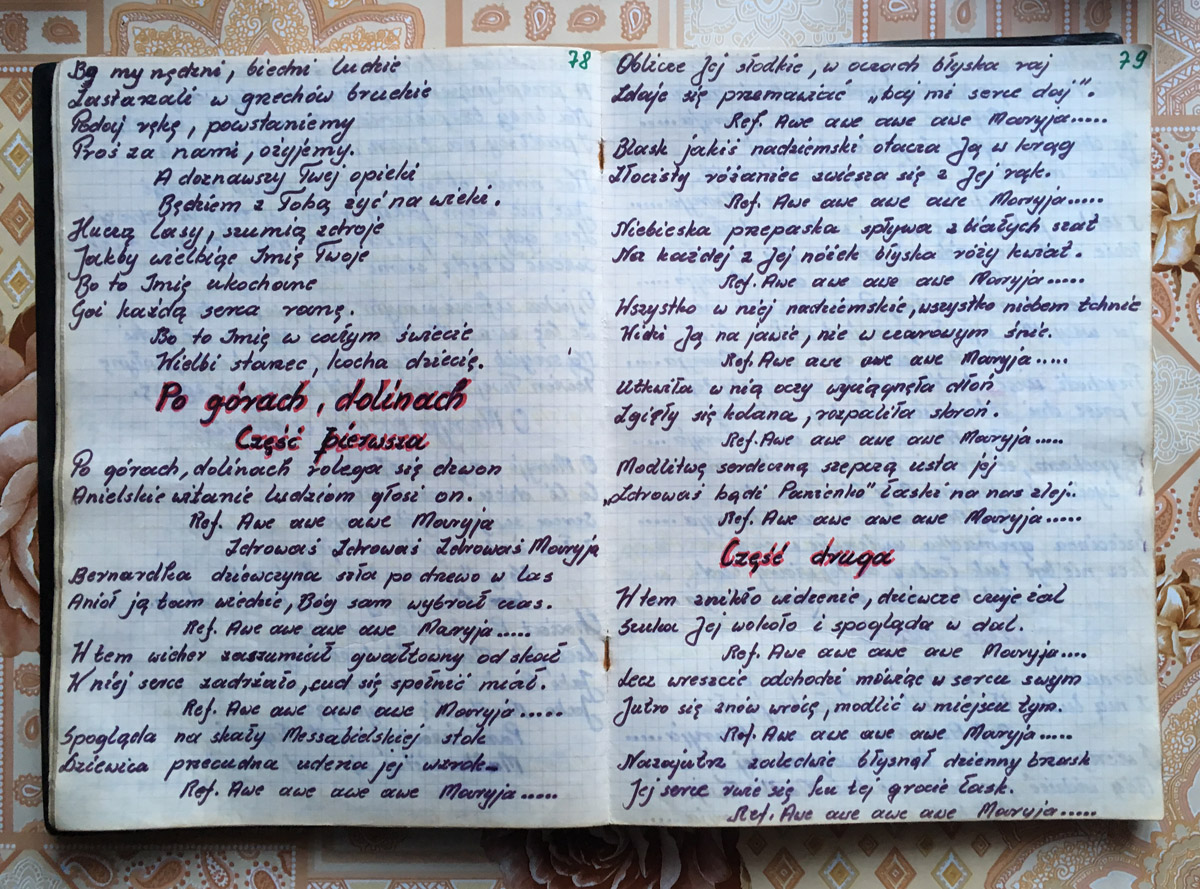 78
Bg my nędzni, biedni ludzie
Zastarzali w grzechów brudzie
Podaj rękę, powstaniemy
Proś za nami, ożyjemy.
A doznawszy Twej opieki
Będziem z Tobą żyć na wieki.
Huczą lasy, szumią zdroje
Jakby wielbiąc Imię Twoje
Bo to Imię ukochane
Goi każdą serca ranę.
Bo to Imię w całym świecie
Wielbi starzec, kocha dziecię.
Po górach, dolinach
Część pierwsza
Po górach, dolinach rolega się dzwon
Anielskie witanie ludziom głosi on.
Ref. Awe awe awe Maryja
Zdrowaś Zdrowaś Zdrowaś Maryja
Bernardka dziewczyna szła po drzewo w las
Anioł ją tam wiedzie, Bóg sam wybrał czas.
Ref. Awe awe awe awe Maryja.....
Wtem wicher zaszumiał gwałtowny od skał
W niéj serce zadrżało, cud się spełnić miał.
Ref. Awe awe awe awe Maryja.....
Spogląda na skały Messabielskiej stok
Dziewica przecudna uderza jej wzrok
Ref. Awe awe awe awe Maryja.....
79
Oblicze Jej słodkie, w oczach błyska raj
Zdaje się przemawiać „baj mi serce daj".
Ref. Awe awe awe awe Maryja.....
Blask jakiś nadziemski otacza Ją w krąg
Złocisty różaniec zwiesza się z Jej rąk.
Ref. Awe awe awe awe Maryja.....
Niebieska przepaska spływa z białych szat
Na każdej z Jej nóżek błyska róży kwiat.
Ref. Awe awe awe awe Maryja.....
Wszystko w niéj nadziémskie, wszystko niebem tchnie
Widzi Ją na jawie, nie w czarowym śnie.
Ref. Awe awe awe awe Maryja.....
Utkwiła w nią oczy wyciągnęła dłoń
Zgięły się kolana, rozpaliła skroń.
Ref. Awe awe awe awe Maryja.....
Modlitwę serdeczną szepczą usta jéj
„Zdrowaś bądź Panienko" łaski na nas zlej.
Ref. Awe awe awe awe Maryja.....
Część druga
Wtem znikło widzenie, dziewcze czuje żal
Szuka Jej wokoło i spogląda w dal.
Ref. Awe awe awe awe Maryja....
Lecz wreszcie odchodzi mówiąc w sercu swym
Jutro się znów wrócę, modlić w miejscu tym.
Ref. Awe awe awe awe Maryja.....
Nazajutrz zaledwie błysnął dzienny brzask
Jej serce rwie się ku tej grocie łask.
Ref. Awe awe awe awe Maryja.....